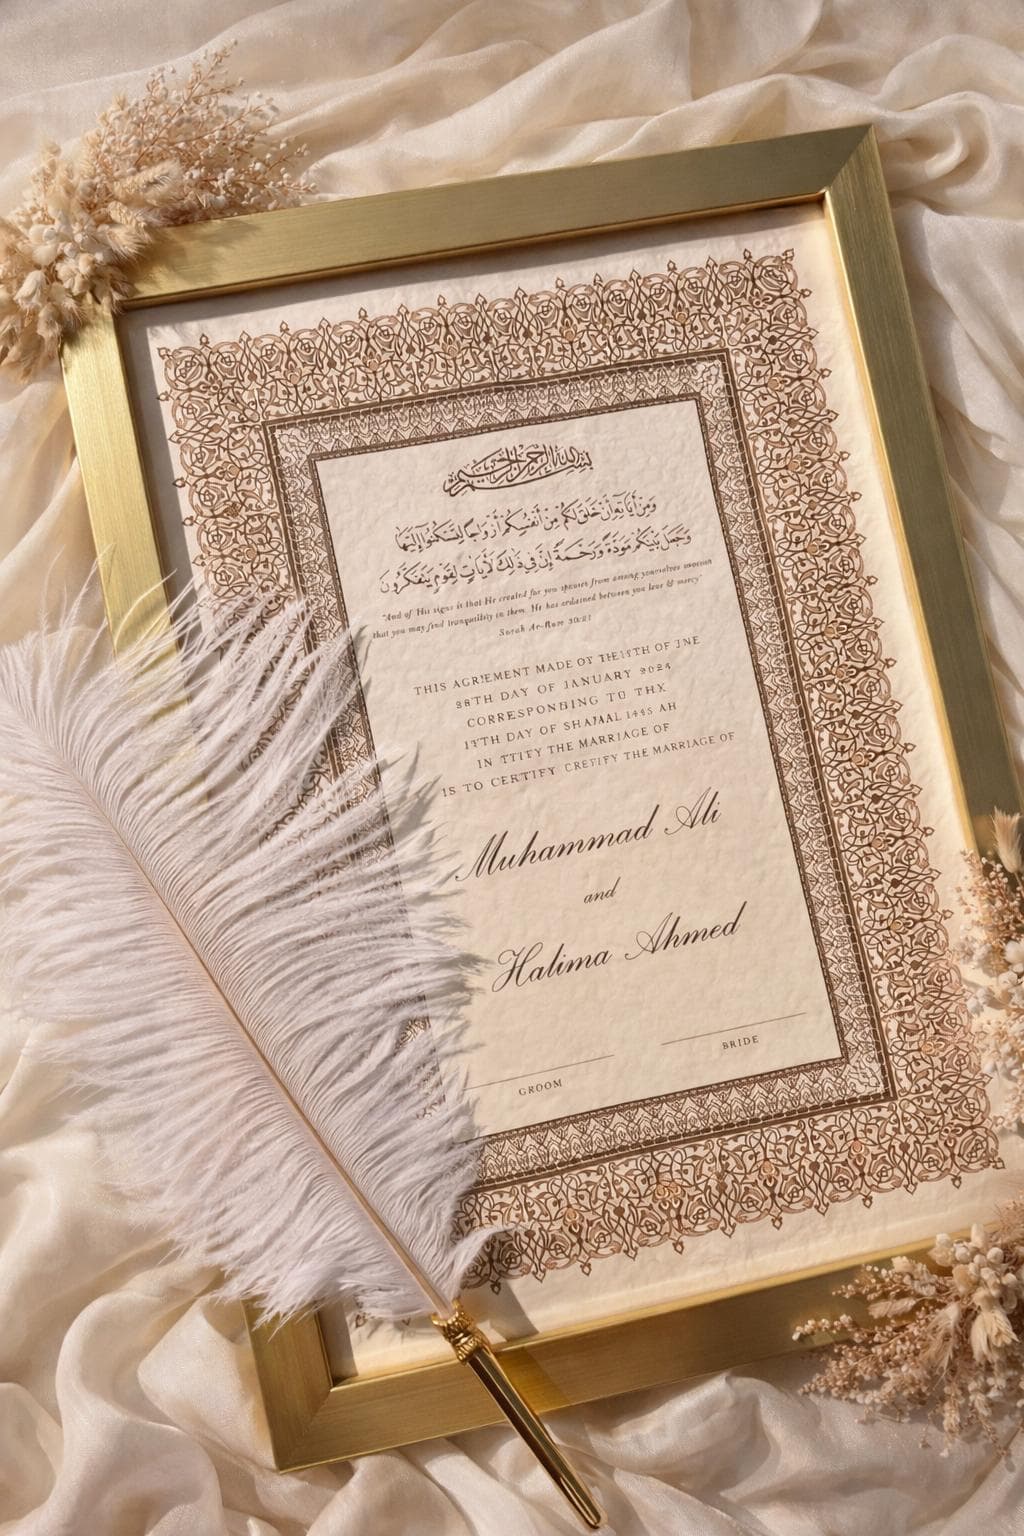 بسم الله الرحمن الرحيم
وَمِنْ آيَاتِهِ أَنْ خَلَقَ لَكُم مِنْ أَنْفُسِكُمْ أَزْوَاجًا لِتَسْكُنُوا إِلَيْهَا
وَجَعَلَ بَيْنَكُمْ مَوَدَّةً وَرَحْمَةً إِنَّ فِي ذَلِكَ لَآيَاتٍ لِقَوْمٍ يَتَفَكَّرُونَ
"And of His signs is that He created for you spouses from among yourselves
that you may find tranquility in them. He has ordained between you love & mercy"
Surah Ar-Rum 30:21
THIS AGREEMENT MADE OT THE15TH OF JNE
28TH DAY OF JANUARY 2024
CORRESPONDING TO THX
17TH DAY OF SHAMAL 1445 AH
IN TTITY THE MARRIAGE OF
IS TO CERTIFY CRETIFY THE MARRIAGE OF
Muhammad Ali
and
Halima Ahmed
GROOM
BRIDE